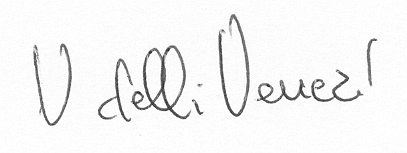 V delli Veneri